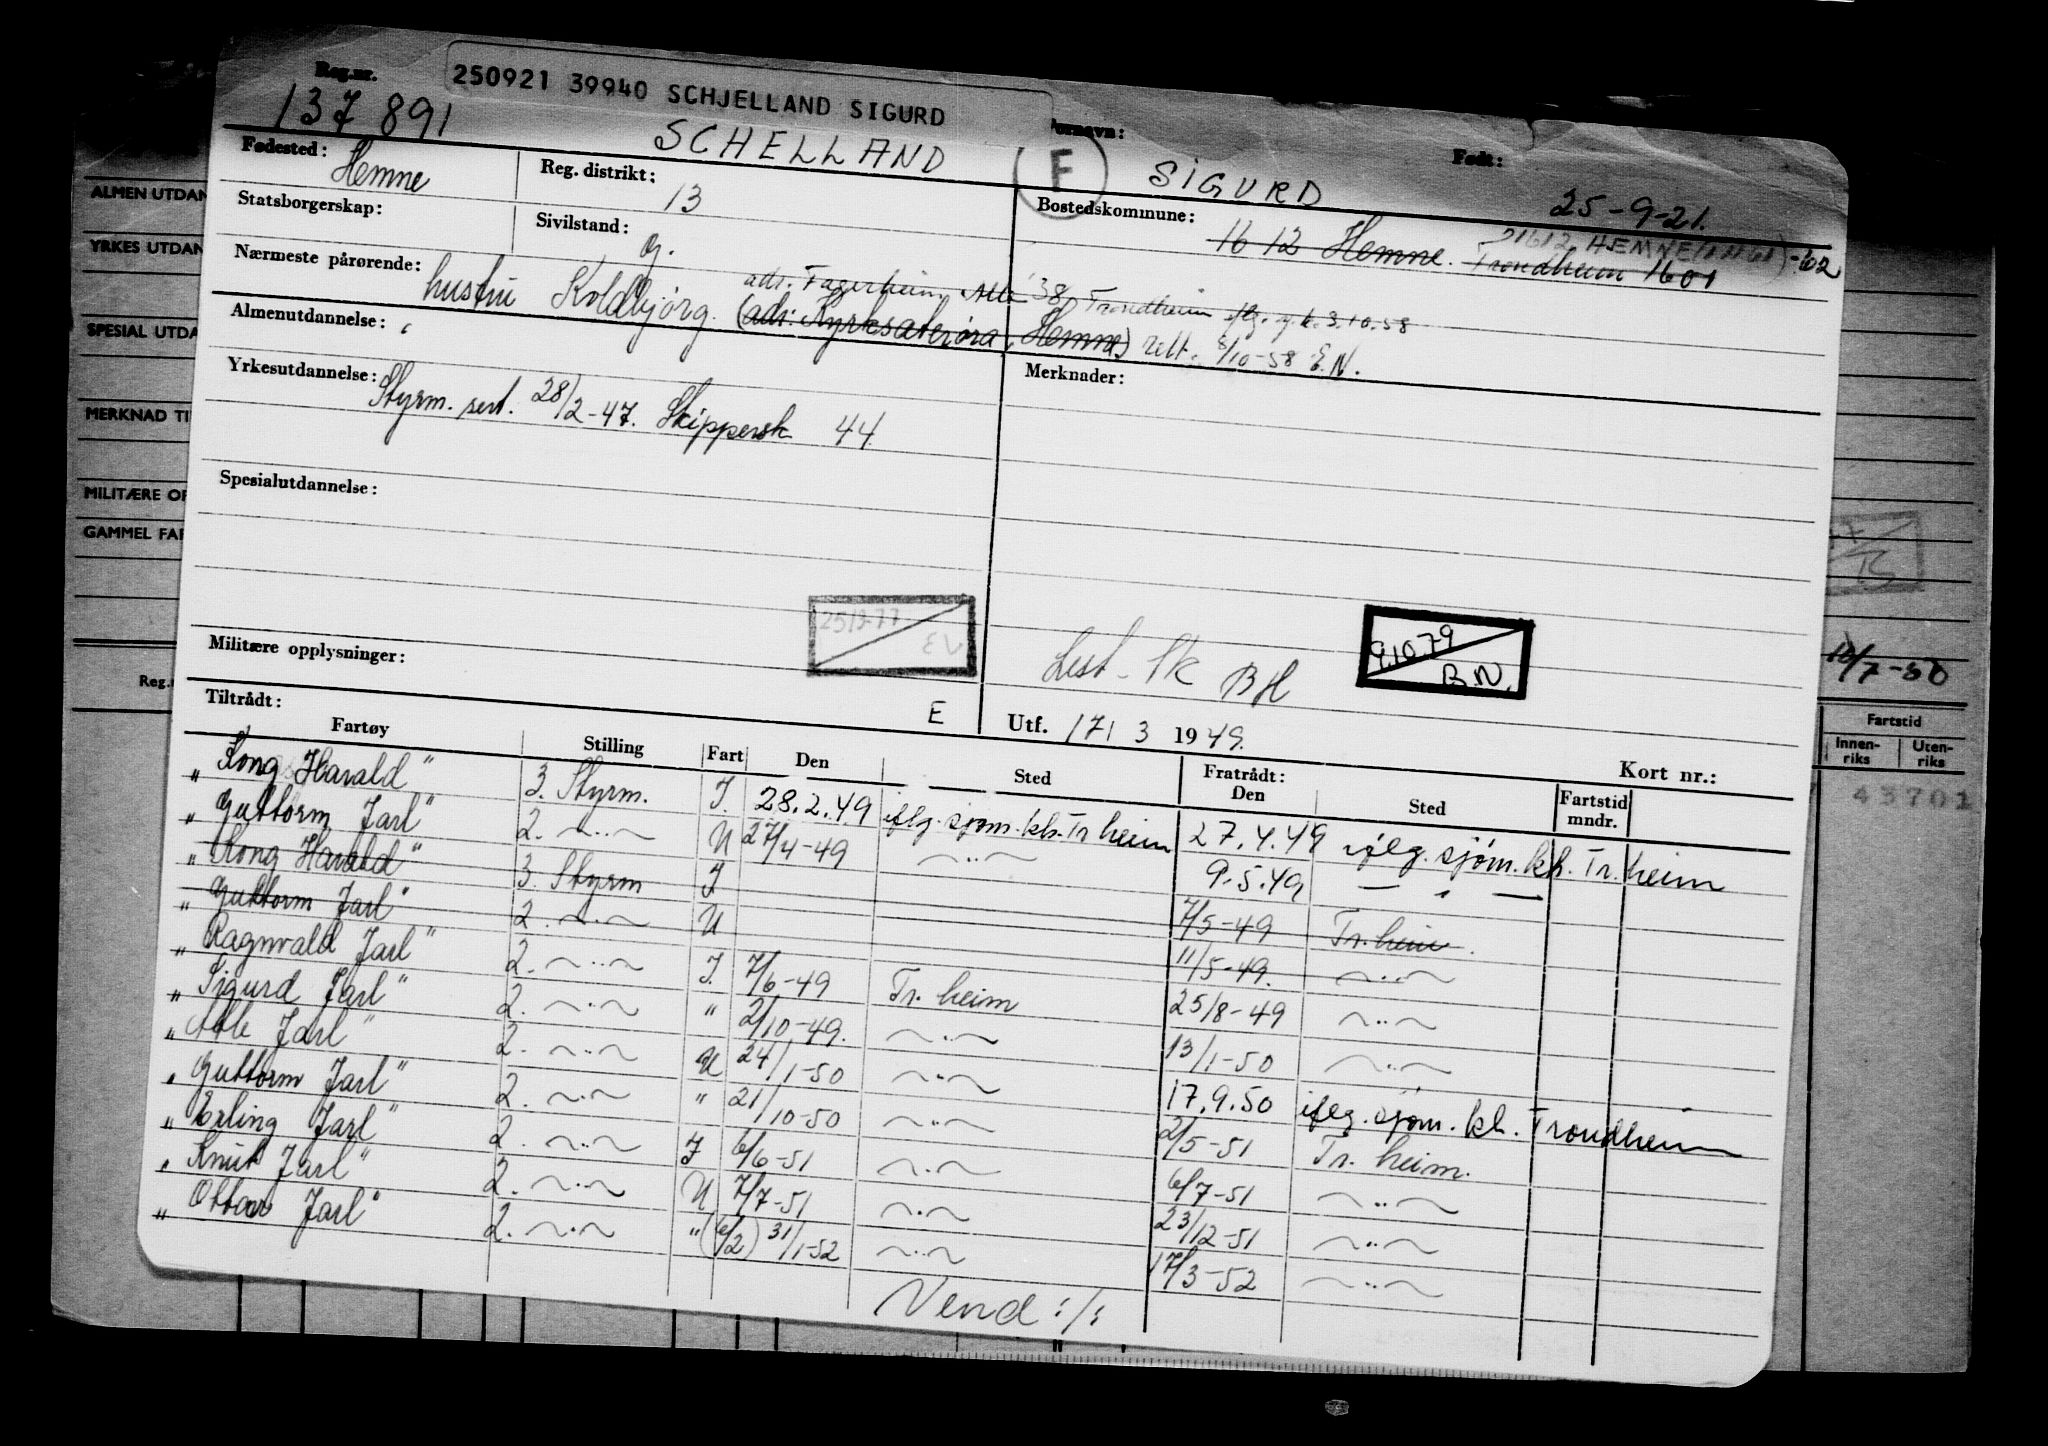 Reg.nr. 250921 39940 SCHJELLAND SIGURD
137 891 SCHELLAND Fornavn: SIGURD Født: 25-9-21.
Fødested: Hemne Reg. distrikt: 13 F Bostedskommune: 1612 Hemne. Trondheim 1601
Statsborgerskap: Sivilstand: g.
Nærmeste pårørende: hustru Koldbjørg. adr. Fagerheim Alle 38, Trondheim iflg. 3.10.58
(adr: Kyrksæterøra, Hemne) rett. 8/10-58 E.N.
Almenutdannelse:
Yrkesutdannelse: Styrm. sert. 28/2-47. Skippersk 44. Merknader:
Spesialutdannelse:
Militære opplysninger: 9.10.79 B.N.
BH
Tiltrådt: E Utf. 17/3 1949. Kort nr.:
Fartøy Stilling Fart Den Sted Fratrådt: Den Sted Fartstid mndr.
"Kong Harald" 3. Styrm. I. 28.2.49 iflg. sjøm.kh. Tr heim 27.4.49 iflg. sjøm.kh. Tr.heim
"Guttorm Jarl" 2. —"— U 27/4-49 —"— 9.5.49 —"—
"Kong Harald" 3. Styrm I 7/5-49 Tr.heim.
"Guttorm Jarl" 2. —"— U 11/5-49. —"—
"Ragnvald Jarl" 2. —"— I. 7/6-49 Tr. heim 25/8-49 —"—
"Sigurd Jarl" 2. —"— " 2/10-49. —"— 13/1-50 —"—
"Atle Jarl" 2. —"— U 24/1-50 —"— 17.9.50 iflg. sjøm.kh. Trondheim
"Guttorm Jarl" 2. —"— " 21/10-50 —"— 2/5-51 Tr. heim.
"Erling Jarl" 2. —"— I 6/6-51 —"— 6/7-51 —"—
"Knut Jarl" 2. —"— U 7/7-51 —"— 23/12-51 —"—
"Ottar Jarl" 2. —"— " (6/2) 31/1-52 —"— 17/3-52 —"—
Vend :/:
ALMEN UTDAN
YRKES UTDAN
SPESIAL UTDA
MERKNAD TI
MILITÆRE OP
GAMMEL FAR
Reg.
Fartstid
Innen-riks Uten-riks
43701